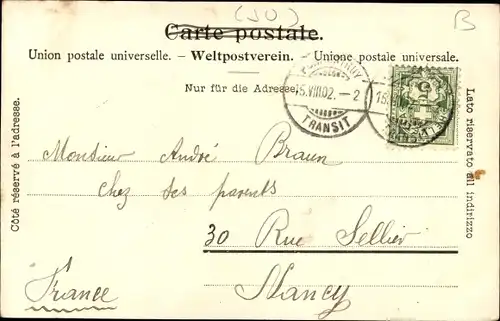 (JU)
B
Carte postale.
Union postale universelle. – Weltpostverein. – Unione postale universale.
Nur für die Adresse.
15.VIII.02. – 2
TRANSIT
Côté réservé à l'adresse.
Lato riservato all indirizzo
Monsieur André Braun
chez ses parents
30 Rue Sellier
Nancy
France